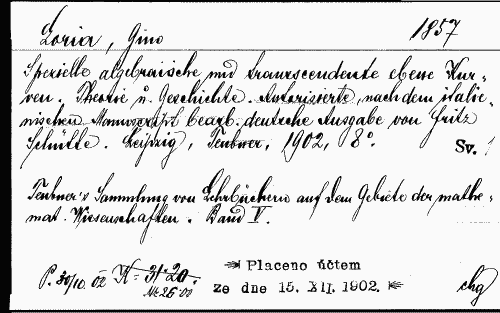 Loria, Gino 1857
Spezielle algebraische und transscendente ebene Kur-
ven. Theorie u. Geschichte. Autorisierte, nach dem italie-
nischen Manuscript bearb. deutsche Ausgabe von Fritz
Schütte. Leipzig, Teubner, 1902, 8°.
Sv. 1
Teubner's Sammlung von Lehrbüchern auf dem Gebiete der mathe-
mat. Wissenschaften. Band V.
P. 30/10 02 K 31·20.
Mk 26·00
Placeno účtem
ze dne 15. XII. 1902.